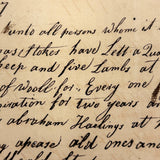 unto all persons whome it
Stokes have Lett a Qua
heep and five Lambs at
of wooll for Every one
piration for two years an
abraham Haelings at
apease old ones and